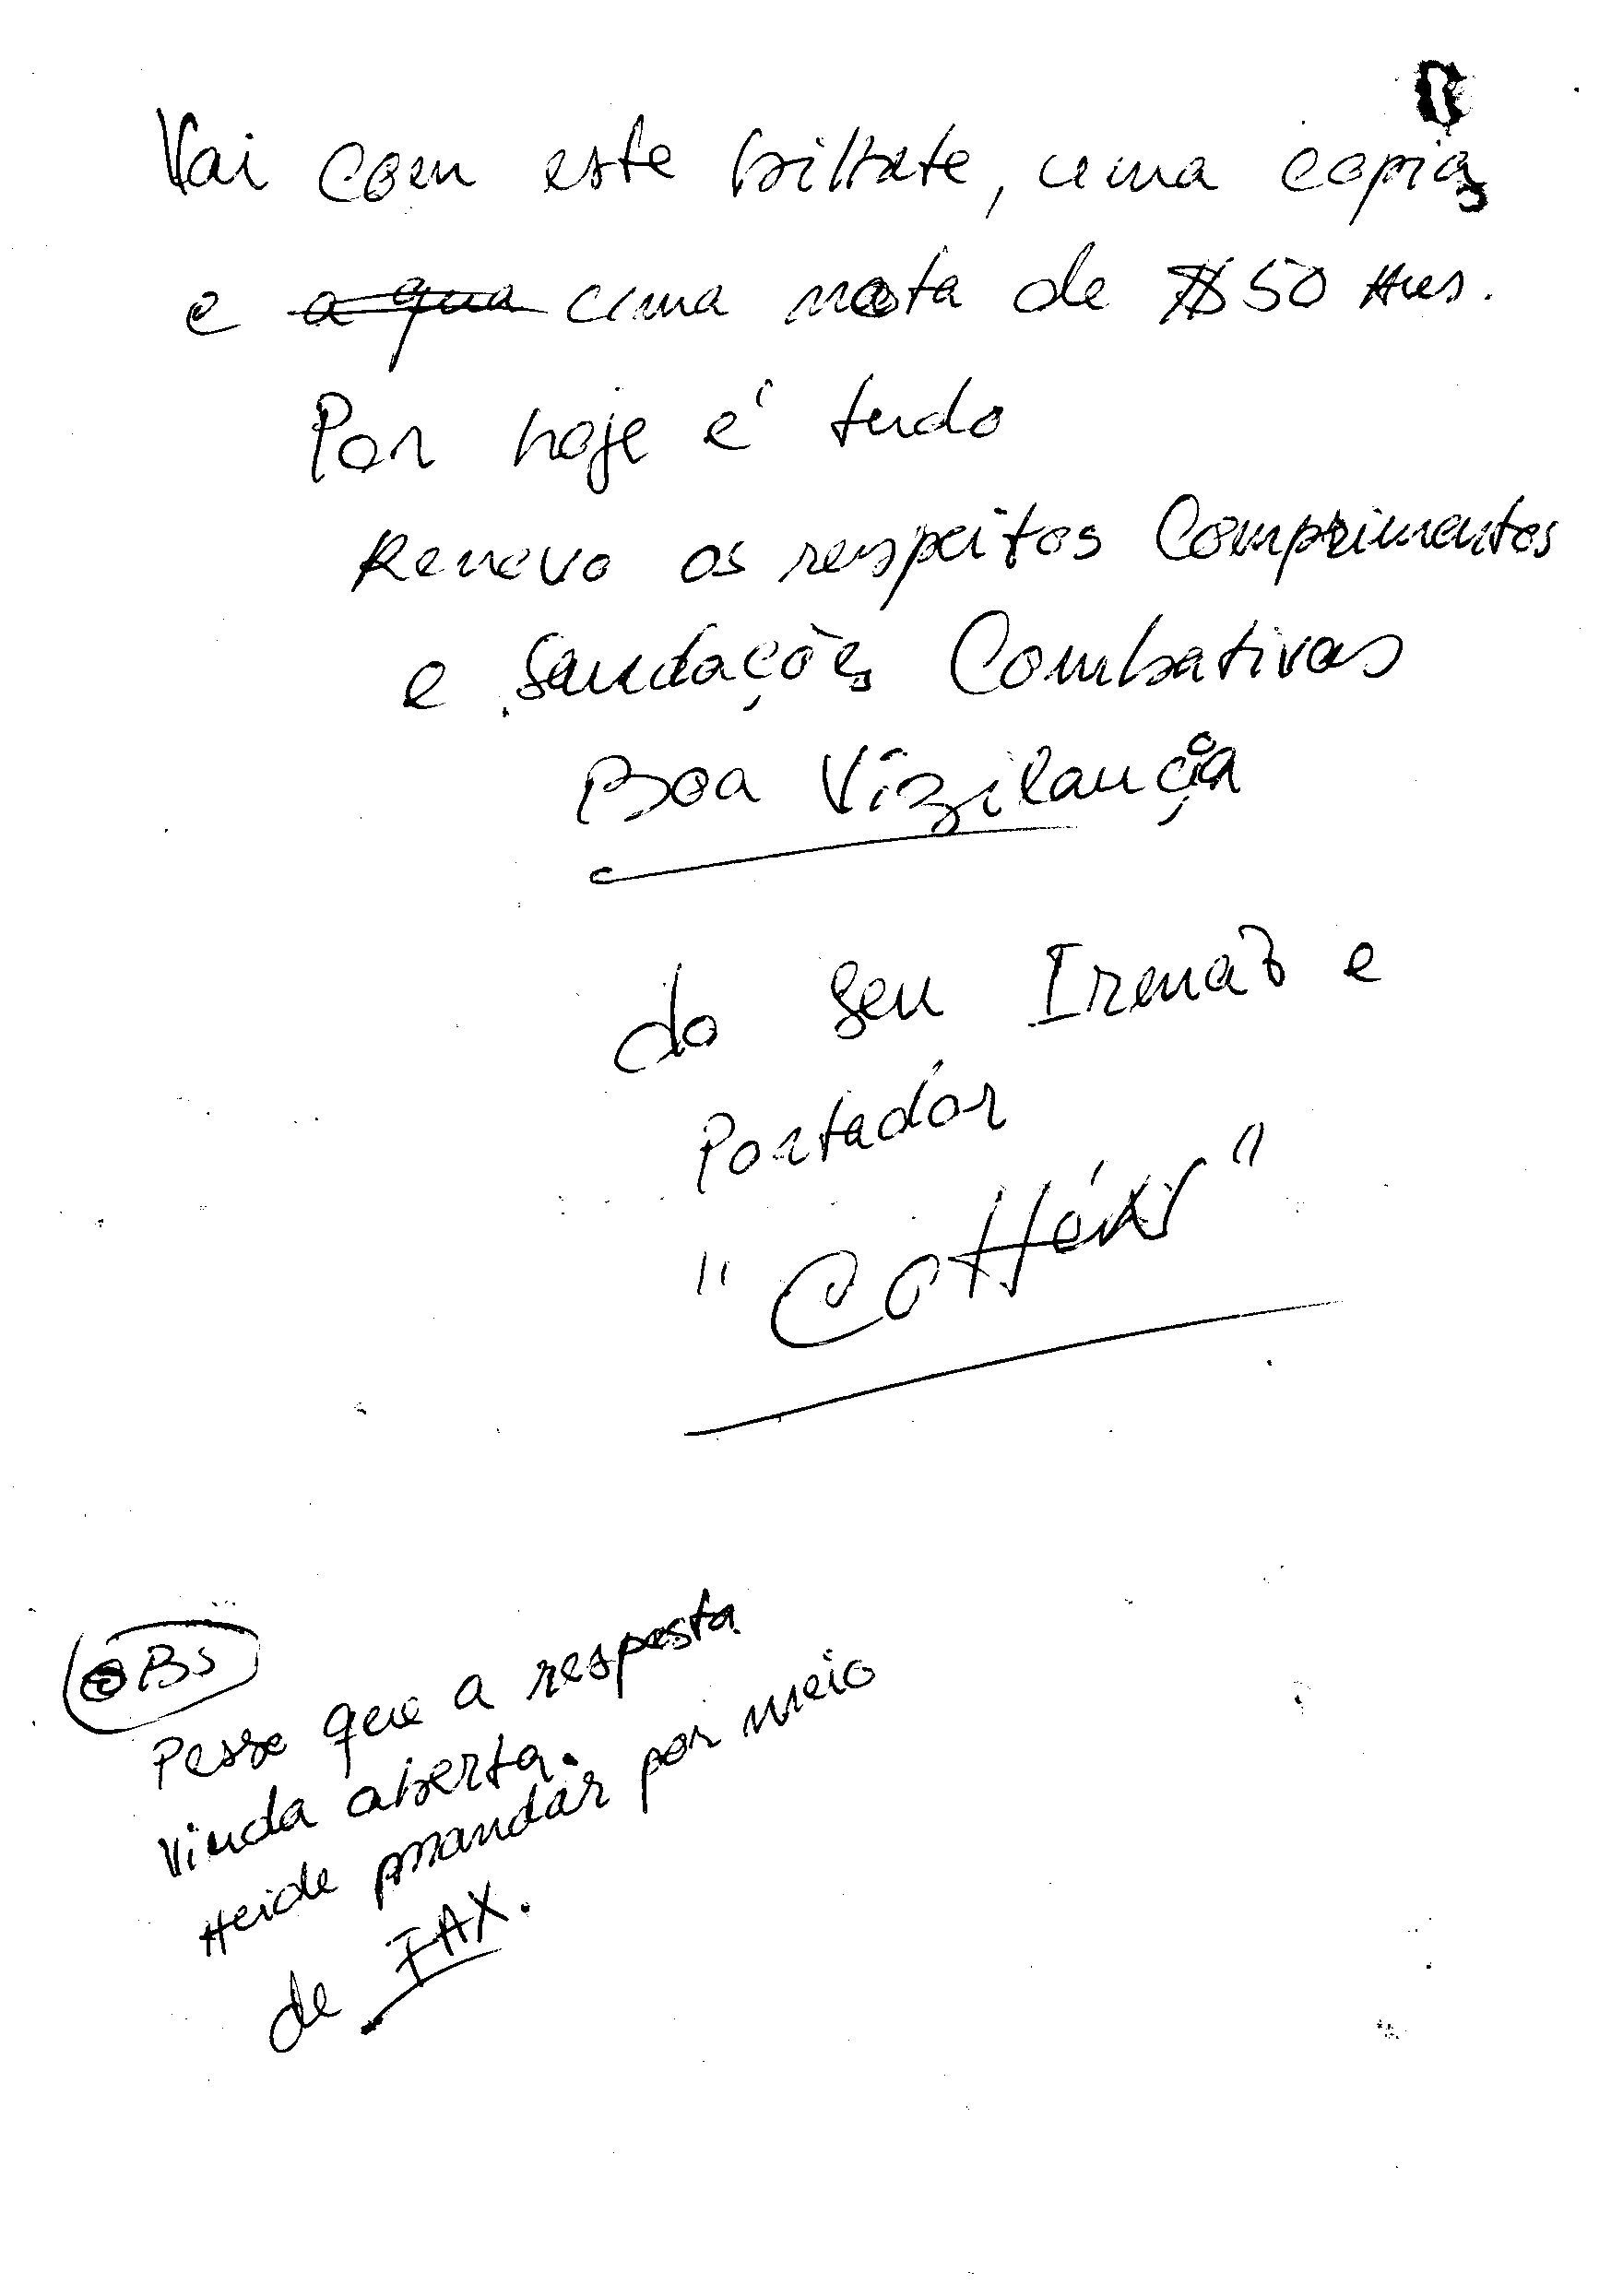 Vai com este bilhete, uma copia
e a qua uma nota de $50 Aus.
Por hoje é tudo
Renovo os respeitos Comprimentos
e Saudações Combativas
Boa Vizilançia
do Seu Irmaõ e
Portadór
"
"
OBS
Pesso que a resposta
vinda aberta.
Heide mandár por meio
de FAX.